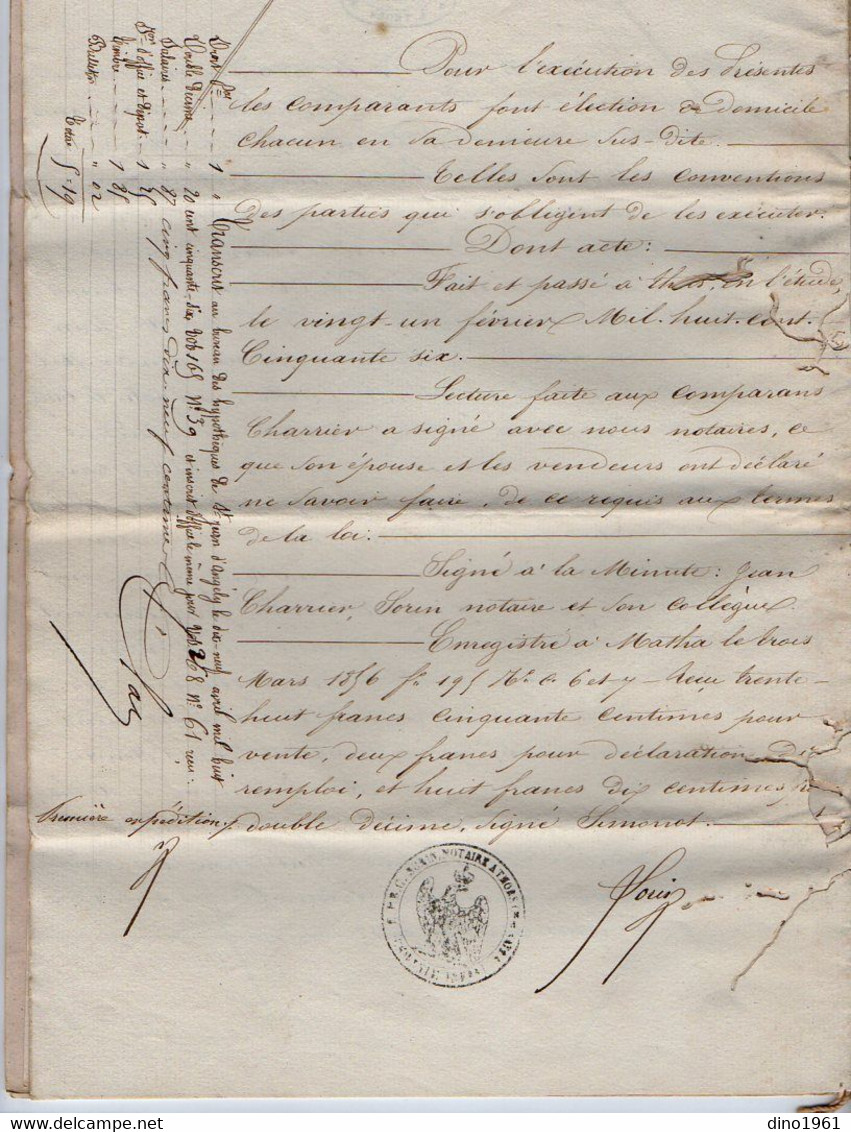 Pour l'exécution des présentes
les comparants font élection de domicile
chacun en sa demeure sus-dite.
Telles sont les conventions
des parties qui s'obligent de les exécuter.
Dont acte :
Fait et passé à en l'étude,
le vingt-un février Mil-huit-cent-
Cinquante six.
Lecture faite aux comparans
Charrier a signé avec nous notaires, ce
que son épouse et les vendeurs ont déclaré
ne savoir faire, de ce requis aux termes
de la loi.
Signé à la Minute : Jean
Charrier, Sorin notaire et son collègue.
Enregistré à Matha le trois
Mars 1856 f° 195 6 et 7 - Reçu trente-
huit francs cinquante centimes pour
vente, deux francs pour déclaration de
remploi, et huit francs dix centimes p.
double décime, signé Simonot.
Première expédition /.
Sorin
NOTAIRE A THORS
Transcrit au bureau des hypothèques de St jean d'angély le dix-neuf avril mil huit
cent cinquante-six, Vol 165 N° 39 et inscrit d'office le même jour Vol 268 N° 61 reçu :
cinq francs dix-neuf centimes
Droit fixe 1 "
Double décime " 20
Salaires " 87
d'office et dépôt 1 25
Timbre 1 85
Bulletin " 02
Total 5=19
dino1961